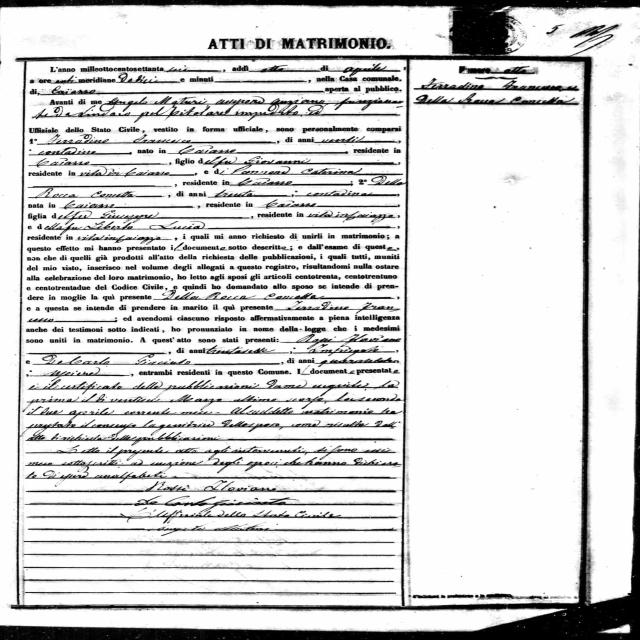 5
ATTI DI MATRIMONIO.
L'anno milleottocentosettanta sei, addì otto di aprile,
a ore antimeridiane Dodici e minuti, nella Casa comunale,
di, Caiazzo aperta al pubblico.
Avanti di me Angelo Maturi assessore anziano funzionan
te da Sindaco pel titolare impedito
Uffiziale dello Stato Civile, vestito in forma ufficiale, sono personalmente comparsi
1° Ferradino Francesco, di anni
contadino nato in Caiazzo, residente in
Caiazzo, figlio del fu Giovanni
residente in vita in Caiazzo, e di Caterina
, residente in Caiazzo; 2° Della
Rocca Concetta, di anni trenta; contadina
nata in Caiazzo, residente in Caiazzo
figlia del fu Giuseppe, residente in vita in Caiazzo,
e della fu Liberto Lucia
residente in vita in Caiazzo, i quali mi anno richiesto di unirli in matrimonio; a
questo effetto mi hanno presentato i documenti sotto descritti; e dall'esame di queste,
non che di quelli già prodotti all'atto della richiesta delle pubblicazioni, i quali tutti, muniti
del mio visto, inserisco nel volume degli allegati a questo registro, risultandomi nulla ostare
alla celebrazione del loro matrimonio, ho letto agli sposi gli articoli centotrenta, centotrentuno
e centotrentadue del Codice Civile, e quindi ho domandato allo sposo se intende di prendere
in moglie la quì presente Della Rocca Concetta,
e a questa se intende di prendere in marito il quì presente Ferradino Fran
cesco; ed avendomi ciascuno risposto affermativamente a piena intelligenza
anche dei testimoni sotto indicati, ho pronunziato in nome della legge che i medesimi
sono uniti in matrimonio. A quest'atto sono stati presenti: Rossi Flaviano
, di anni; Impiegato
e De Carlo Giacinto, di anni
; Usciere, entrambi residenti in questo Comune. I documenti presentati
è il certificato delle pubblicazioni da me eseguite, la
prima il dì ventisei Marzo ultimo scorso, la seconda
il due aprile corrente mese. Al suddetto matrimonio ha
prestato il consenso la genitrice dello sposo, come risulta dall'
atto di richiesta delle pubblicazioni
Letto il presente atto agli intervenuti, si sono essi
meco sottoscritti, ad eccezione degli sposi, che hanno dichiara
to di essere analfabeti.
Rossi Flaviano
De Carlo Giacinto
L'Uffiziale dello Stato Civile
Angelo Maturi
Numero otto
Ferradino Francesco e
Della Rocca Concetta